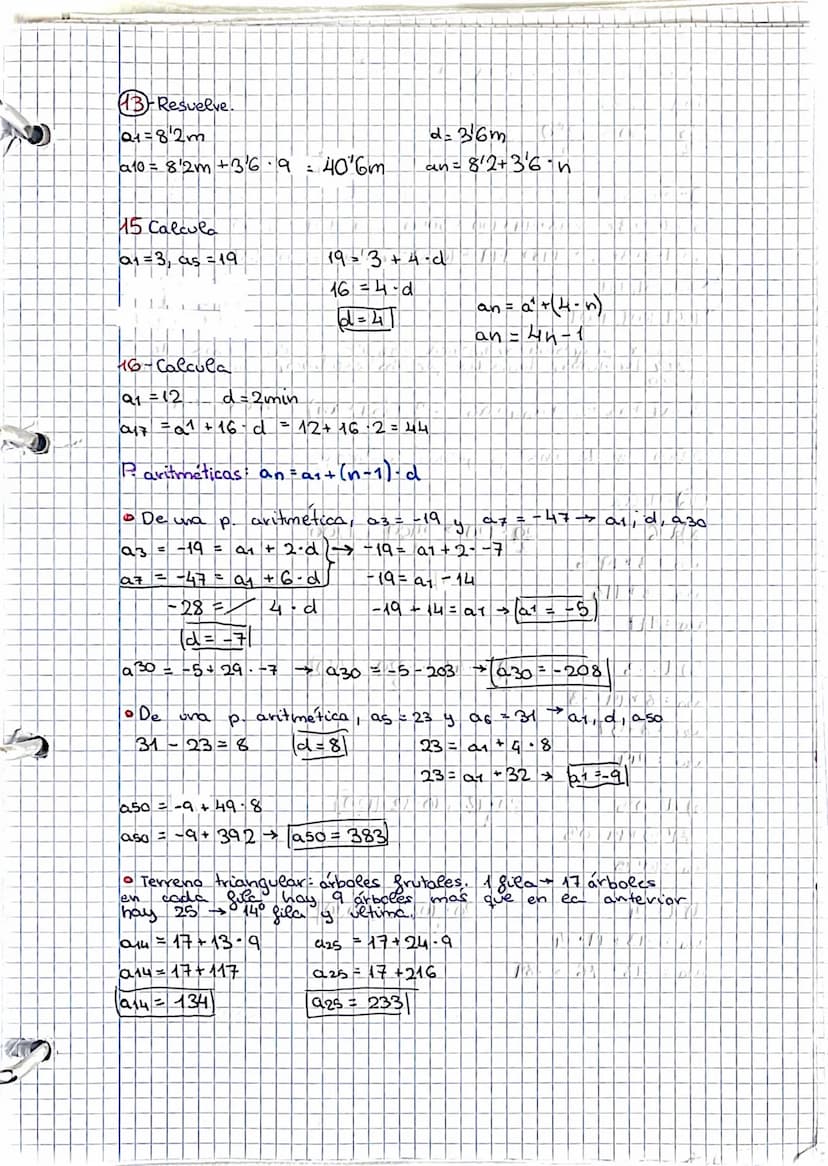 13-Resuelve.
a1=8'2m d=3'6m
a10= 8'2m+3'6·9 = 40'6m an= 8'2+3'6·n
15 Calcula
a1=3, a5=19 19= 3 + 4·d
16 = 4·d
d=4 an = a1+(4-n)
an = 4n-1
16-Calcula
a1=12 d=2min
a17 =a1 +16·d = 12+16·2=44
P. aritméticas: an=a1+(n-1)·d
De una p. aritmética, a3=-19 y a7=-47→ a1, d, a30
a3 = -19 = a1 + 2·d → -19= a1+2·-7
a7 = -47= a1 + 6·d -19=a1-14
-28 = 4·d -19+14=a1 → a1 = -5
d=-7
a30 = -5+29·-7 → a30 = -5-203 → a30=-208
De una p. aritmética, a5=23 y a6=31 → a1, d, a50
31-23=8 d=8 23= a1+4·8
23= a1+32 → a1=-9
a50 = -9+49·8
a50 = -9+392 → a50=383
Terreno triangular: árboles frutales. 1 fila → 17 árboles
en cada fila hay 9 árboles más que en la anterior
hay 25 → 14º fila y última.
a14 = 17+13·9 a25 = 17+24·9
a14=17+117 a25=17+216
a14 = 134 a25 = 233